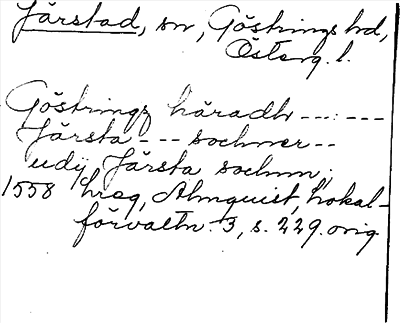 Järstad, sn, Göstrings hd,
Österg. l.
Göstrings häradh --- ---
Järsta - -- sochner --
udij Järsta sochnn;
1558 hreg, Almquist, Lokal-
förvaltn. 3, s. 229. orig.